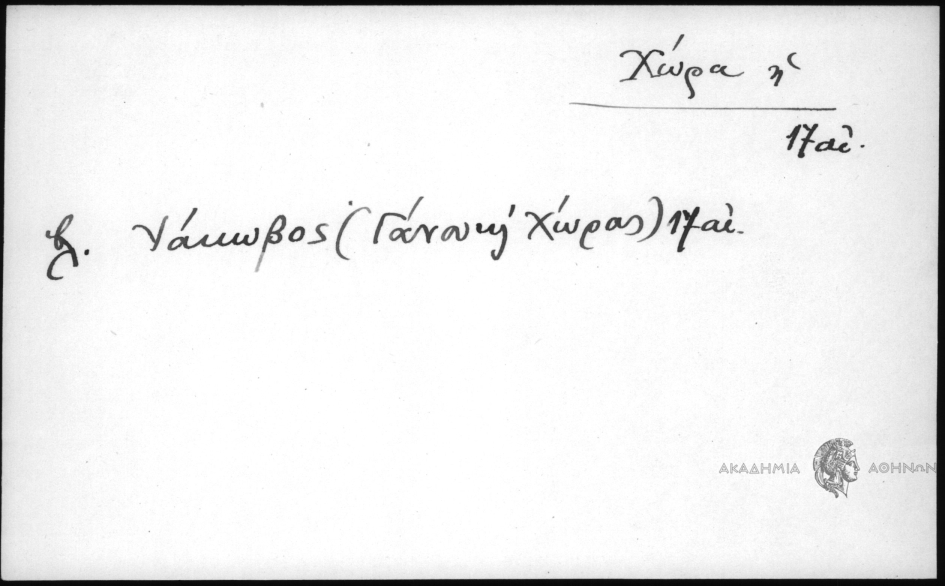 Χώρα ἡ
17 αἰ.
βλ. Ἰάκωβος (Γάνου καὶ Χώρας) 17 αἰ.
ΑΚΑΔΗΜΙΑ ΑΘΗΝΩΝ